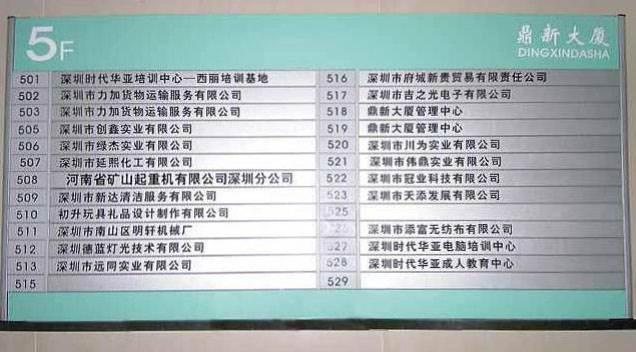 5F
鼎新大厦
DINGXINDASHA
501 深圳时代华亚培训中心—西丽培训基地
502 深圳市力加货物运输服务有限公司
503 深圳市力加货物运输服务有限公司
505 深圳市创鑫实业有限公司
506 深圳市绿杰实业有限公司
507 深圳市延熙化工有限公司
508 河南省矿山起重机有限公司深圳分公司
509 深圳市新达清洁服务有限公司
510 初升玩具礼品设计制作有限公司
511 深圳市南山区明轩机械厂
512 深圳德蓝灯光技术有限公司
513 深圳市远同实业有限公司
515
516 深圳市府城新贵贸易有限责任公司
517 深圳市吉之光电子有限公司
518 鼎新大厦管理中心
519 鼎新大厦管理中心
520 深圳市川为实业有限公司
521 深圳市伟鼎实业有限公司
522 深圳市冠业科技有限公司
523 深圳市天添发展有限公司
525
深圳市添富无纺布有限公司
527 深圳时代华亚电脑培训中心
528 深圳时代华亚成人教育中心
529